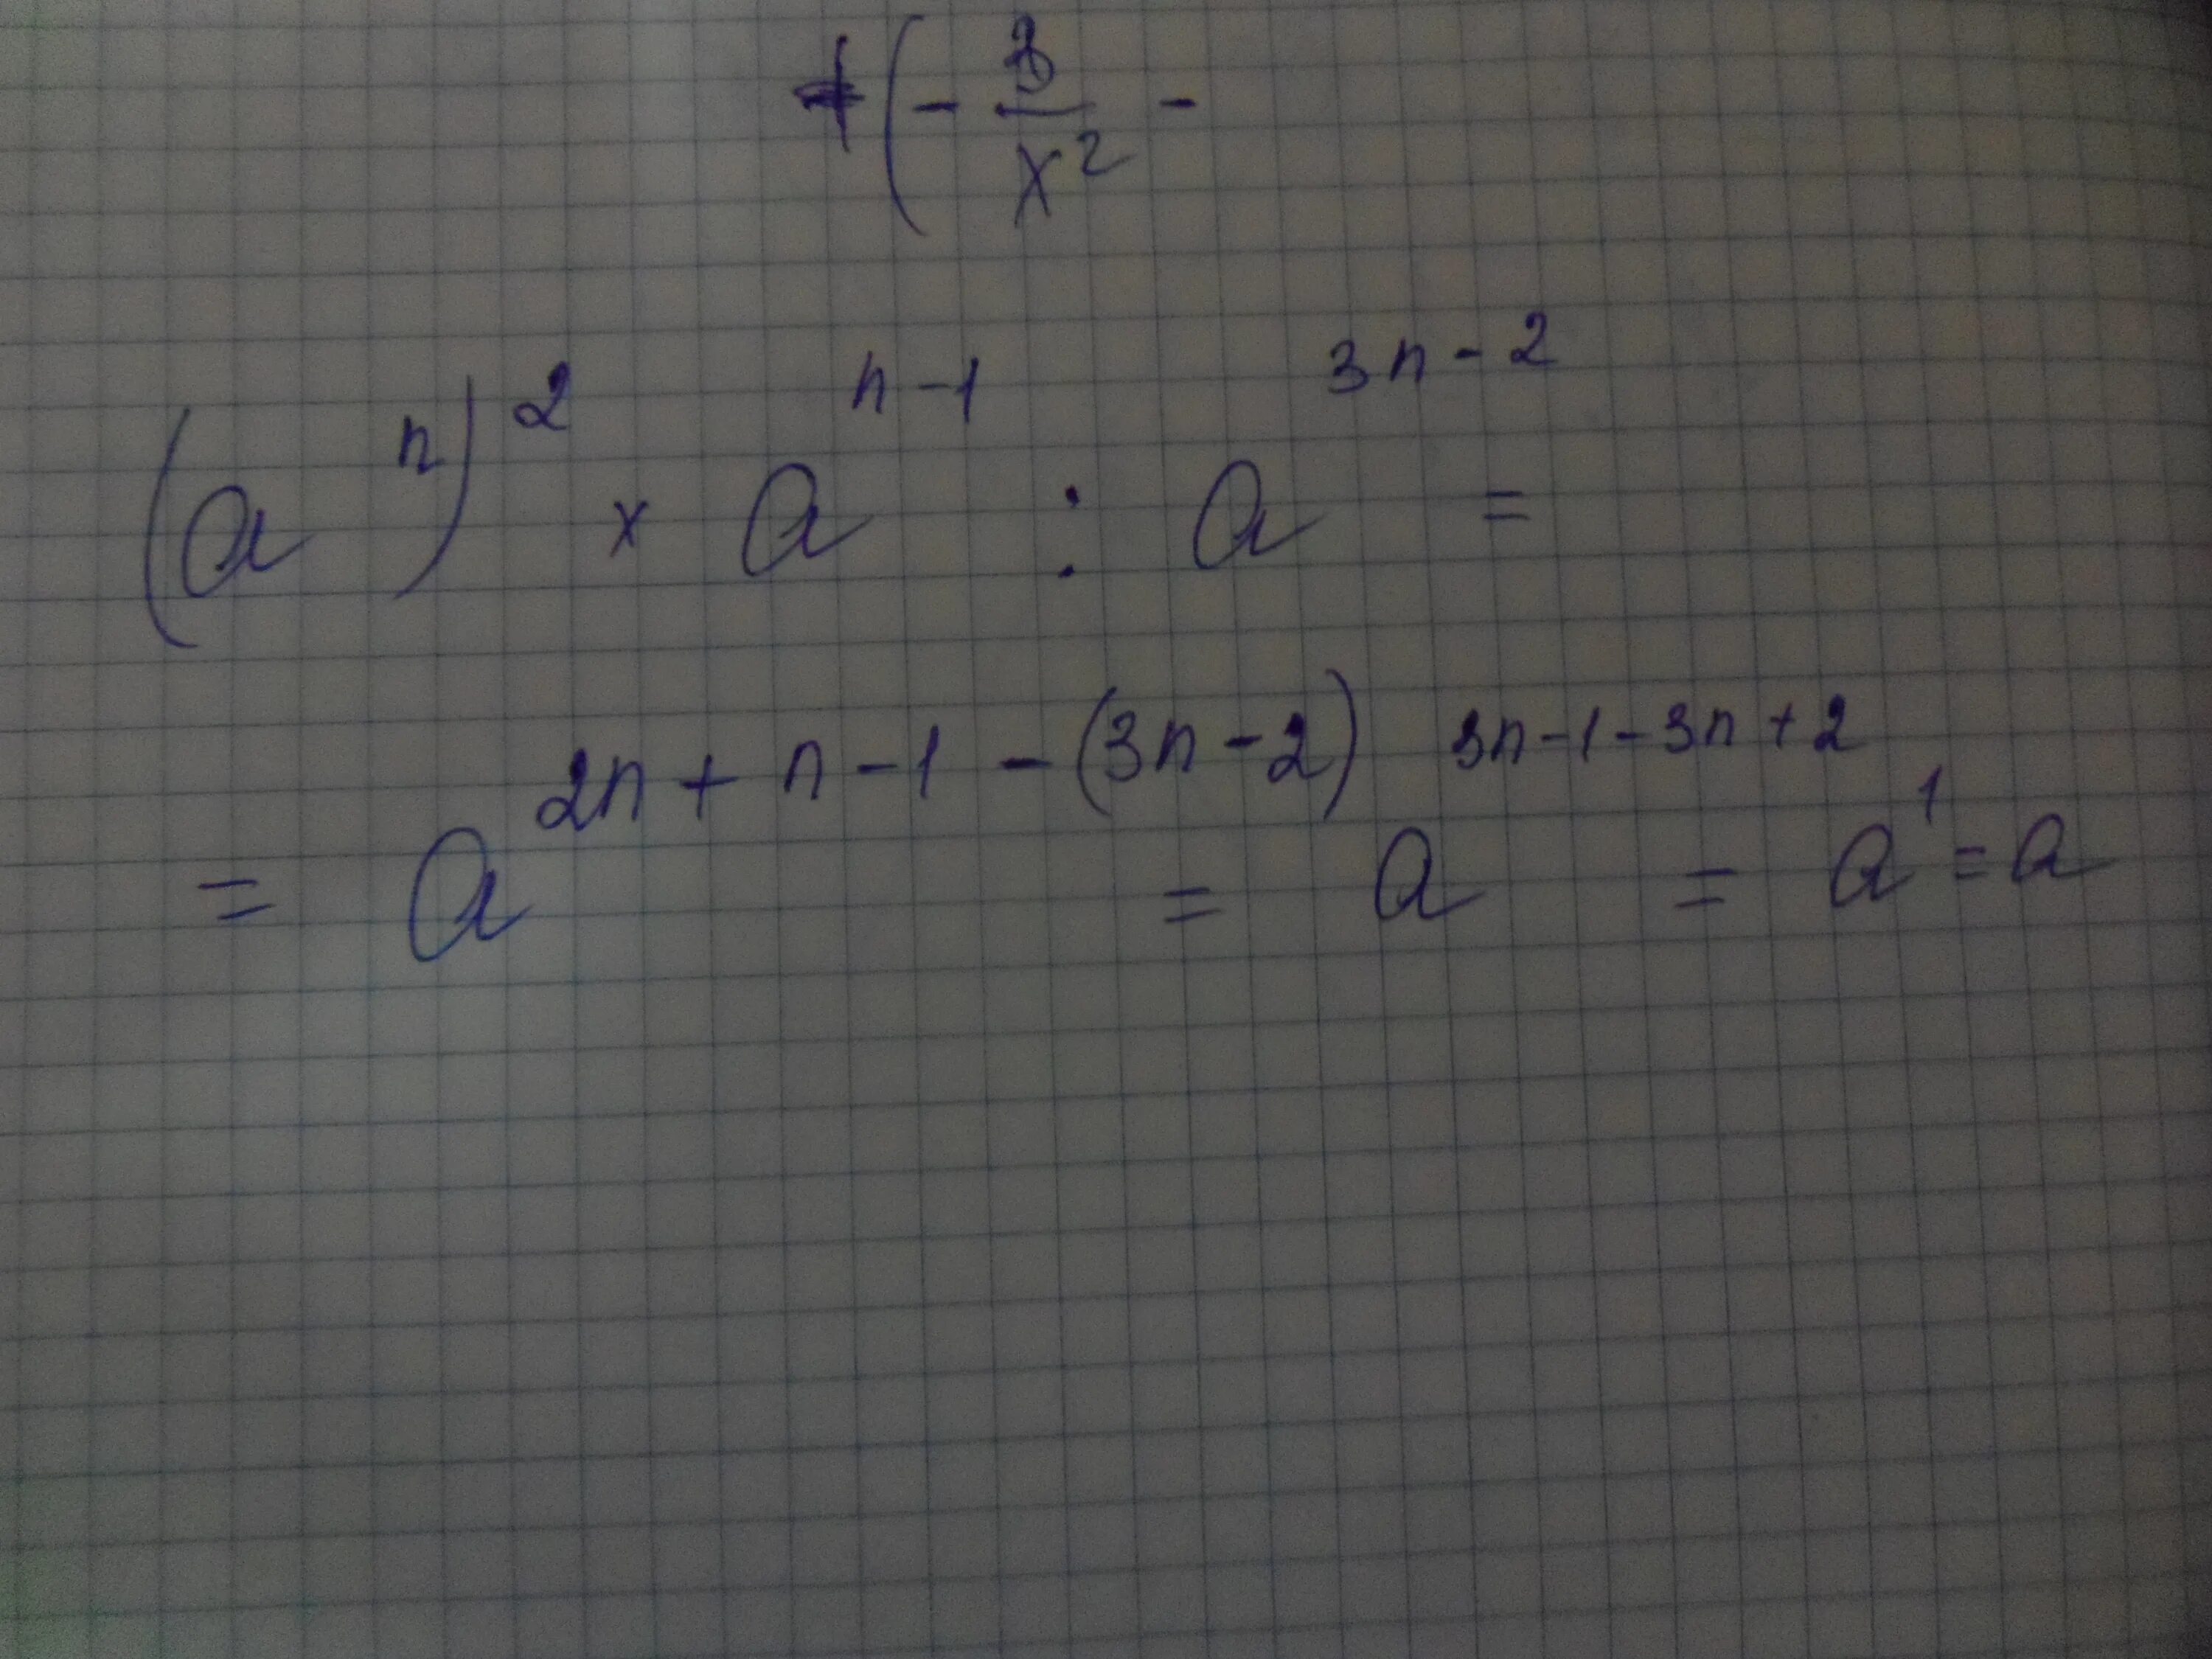 +(- 3/x² -
(aⁿ)² × aⁿ⁻¹ : a³ⁿ⁻² =
= a^(2n + n - 1 - (3n - 2)) = a^(3n - 1 - 3n + 2) = a¹ = a